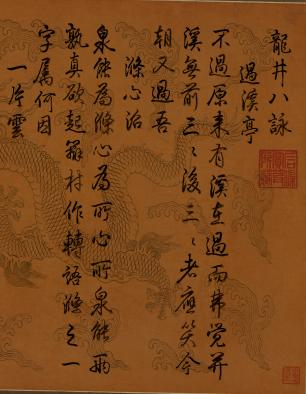 龍井八詠
過溪亭
不過原來有溪在過而弗覺并
溪無前三〻後三〻老應笑今
朝又過吾
滌心沼
泉能為滌心為所心所泉能兩
孰真欲起辯材作轉語滌之一
字屬何因
一片雲